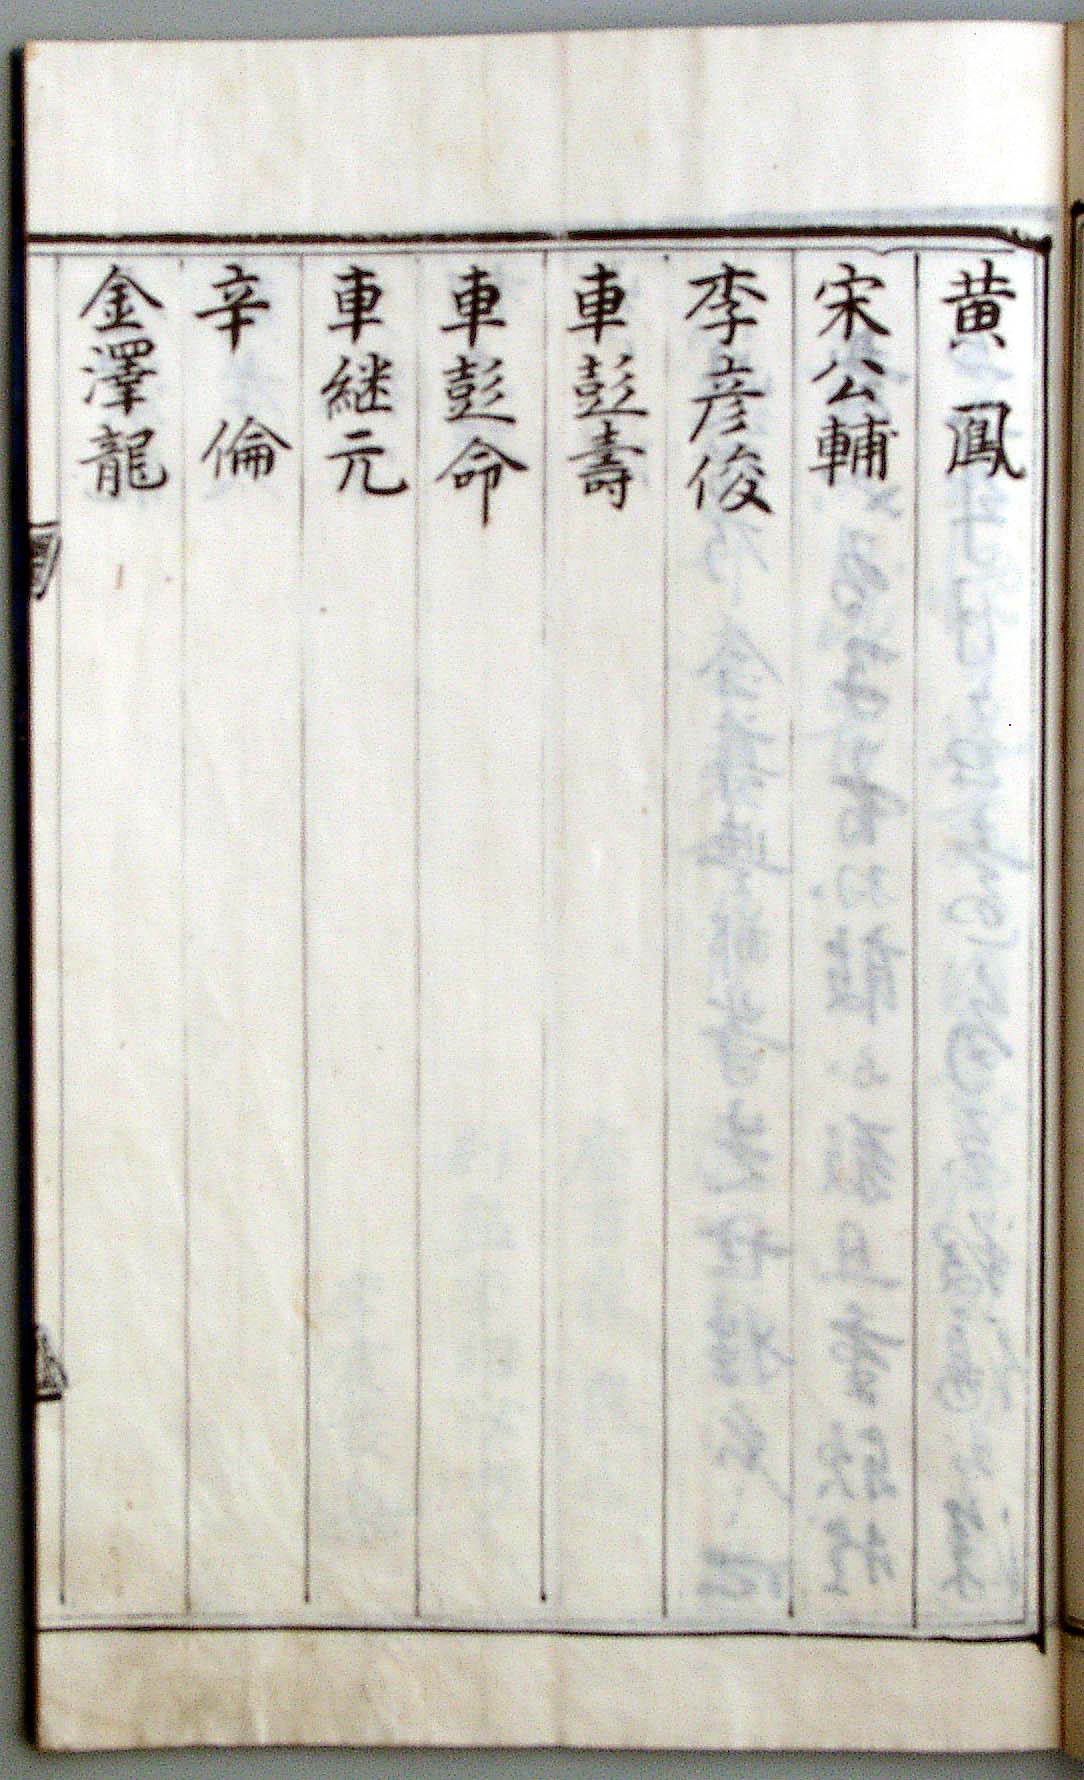 黄鳳
宋公輔
李彦俊
車彭壽
車彭命
車継元
辛倫
金澤龍